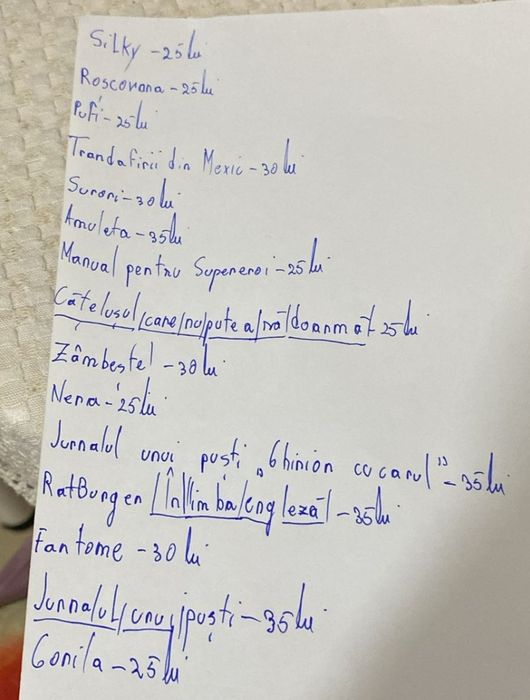 Silky - 25 lu
Roscovana - 25 lu
Pufi - 25 lu
Trandafirii din Mexic - 30 lu
Surori - 30 lu
Amuleta - 35 lu
Manual pentru Supereroi - 25 lu
Cățelușul/care/nu/putea/să/doarmă - 25 lu
Zâmbește! - 30 lu
Nera - 25 lu
Jurnalul unui puști „Ghinion cu carul" - 35 lu
RatBurger /În/limba/engleză/ - 35 lu
Fantome - 30 lu
Jurnalul/unui/puști - 35 lu
Gorila - 25 lu